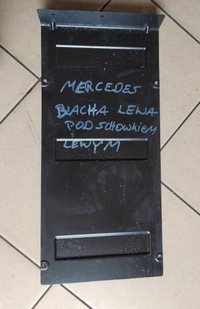 MERCEDES
BLACHA LEWA
POD SCHOWKIEM
LEWYM